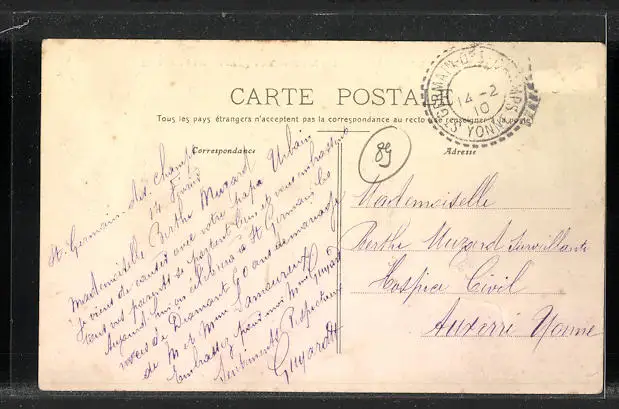 CARTE POSTALE
Tous les pays étrangers n'acceptent pas la correspondance au recto (se renseigner à la poste)
Correspondance
Adresse
89
ST GERMAIN-DES-CHAMPS
14-2
10
YONNE
St Germain-des-Champs
14 Février
Mademoiselle Berthe Muzard
Je viens de causer avec votre papa Urbain
tous vos parents se portent bien et vous embrassent
Aujourd'hui on célèbrera à St Germain les
noces de Diamant 60 ans de mariage
de M et Mme Lamoureux
Embrassez pour moi Mme Guyard
Sentiments Respectueux
Guyard
Mademoiselle
Berthe Muzard Surveillante
Hospice Civil
Auxerre Yonne